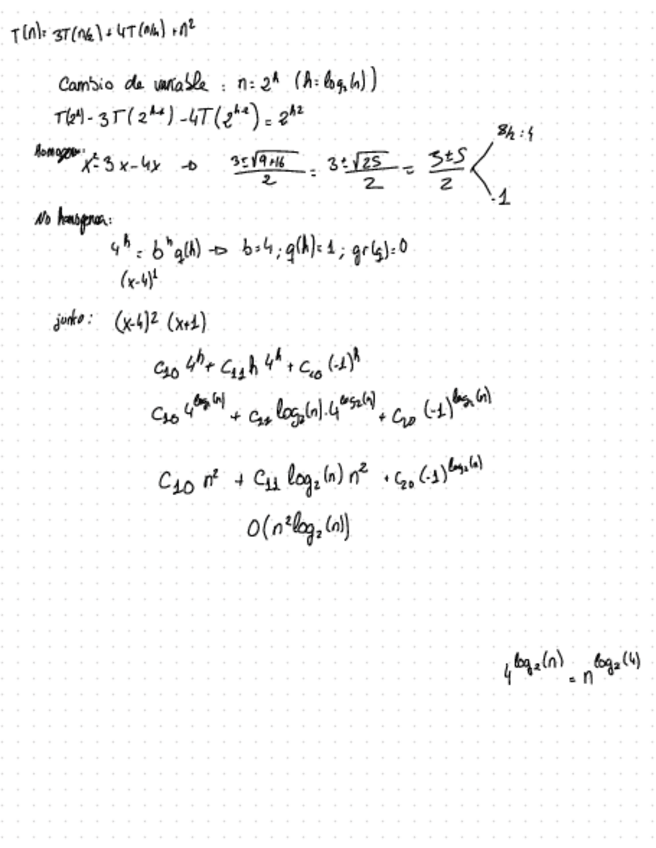 T(n) = 3T(n/2) + 4T(n/4) + n²
Cambio de variable : n = 2^h (h = log₂(n))
T(2^h) - 3T(2^{h-1}) - 4T(2^{h-2}) = 2^{h2}
x² - 3x - 4x → (3 ± √(9+16))/2 = (3 ± √25)/2 = (3 ± 5)/2
8/2 = 4
-1
No homogenea:
4^h = b^h q(h) → b = 4 ; q(h) = 1 ; gr(q) = 0
(x-4)¹
junto : (x-4)² (x+1)
C₁₀ 4^h + C₁₁ h 4^h + C₂₀ (-1)^h
C₁₀ 4^{log₂(n)} + C₁₁ log₂(n) · 4^{log₂(n)} + C₂₀ (-1)^{log₂(n)}
C₁₀ n² + C₁₁ log₂(n) n² + C₂₀ (-1)^{log₂(n)}
O(n² log₂(n))
4^{log₂(n)} = n^{log₂(4)}